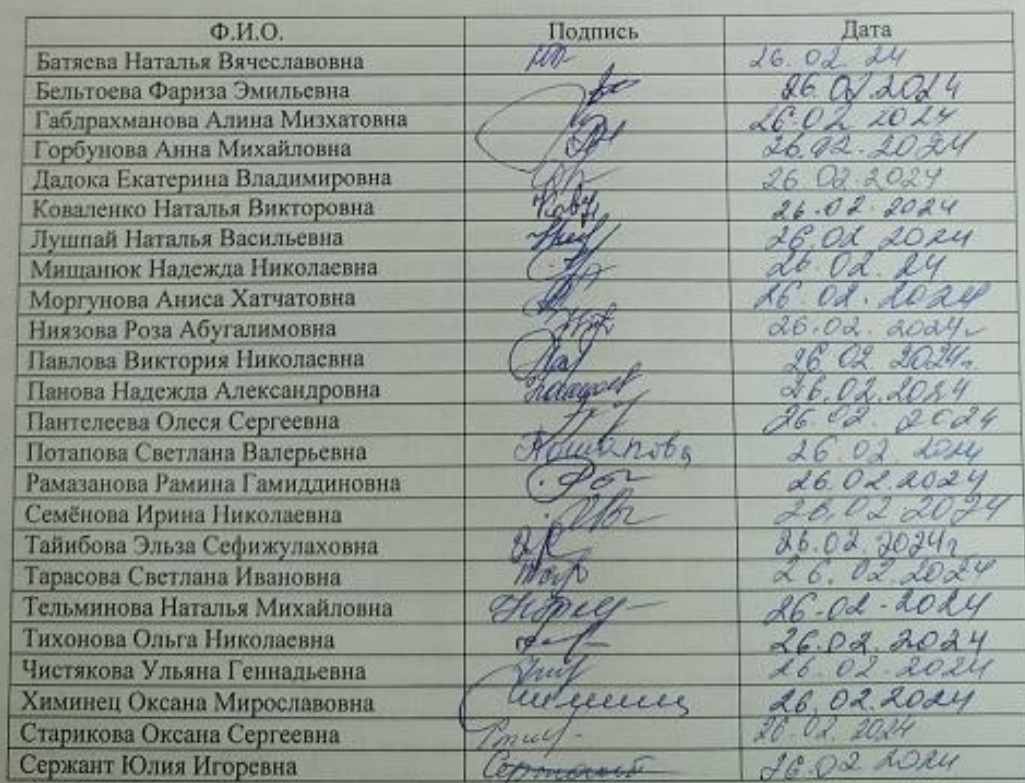 Ф.И.О. Подпись Дата
Батяева Наталья Вячеславовна 26.02.24
Бельтоева Фариза Эмильевна 26.02.2024
Габдрахманова Алина Мизхатовна 26.02 2024
Горбунова Анна Михайловна 26.02.2024
Дадока Екатерина Владимировна 26.02.2024
Коваленко Наталья Викторовна 26.02.2024
Лушпай Наталья Васильевна 26.02 2024
Мищанюк Надежда Николаевна 26.02.24
Моргунова Аниса Хатчатовна 26.02.2024
Ниязова Роза Абугалимовна 26.02.2024г
Павлова Виктория Николаевна 26.02.2024г.
Панова Надежда Александровна 26.02.2024
Пантелеева Олеся Сергеевна 26.02.2024
Потапова Светлана Валерьевна Потапова 26.02.2024
Рамазанова Рамина Гамиддиновна 26.02.2024
Семёнова Ирина Николаевна 26.02.2024
Тайибова Эльза Сефижулаховна 26.02.2024г
Тарасова Светлана Ивановна 26.02.2024
Тельминова Наталья Михайловна 26.02.2024
Тихонова Ольга Николаевна 26.02.2024
Чистякова Ульяна Геннадьевна 26.02.2024
Химинец Оксана Мирославовна 26.02.2024
Старикова Оксана Сергеевна 26.02.2024
Сержант Юлия Игоревна 26.02 2024